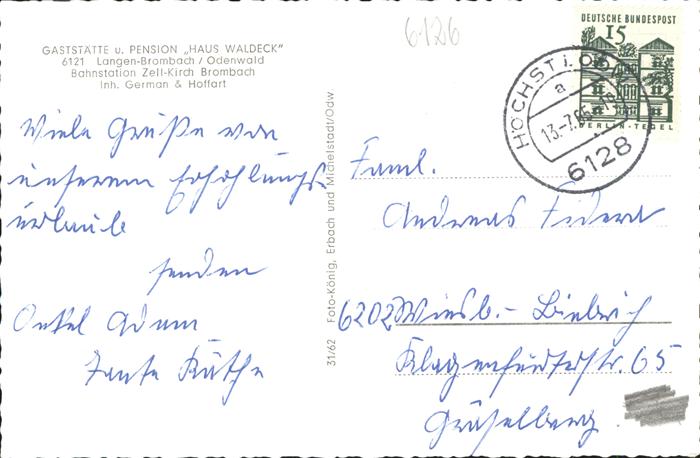 6126
GASTSTÄTTE u. PENSION „HAUS WALDECK"
6121 Langen-Brombach / Odenwald
Bahnstation Zell-Kirch Brombach
Inh. German & Hoffart
Viele Grüße von
unserem Erholungs-
urlaub
senden
Onkel Adam
Tante Käthe
31/62 Foto-König, Erbach und Michelstadt/Odw
DEUTSCHE BUNDESPOST
15
BERLIN-TEGEL
HÖCHST i. ODW
a
13.-7.65
6128
Faml.
Andreas
6202 Wiesb.- Biebrich
Klagenfurterstr. 65
Gräselberg